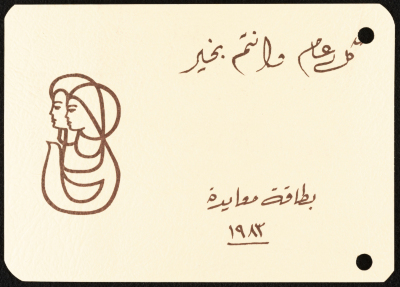 كل عام وانتم بخير
بطاقة معايدة
١٩٨٣